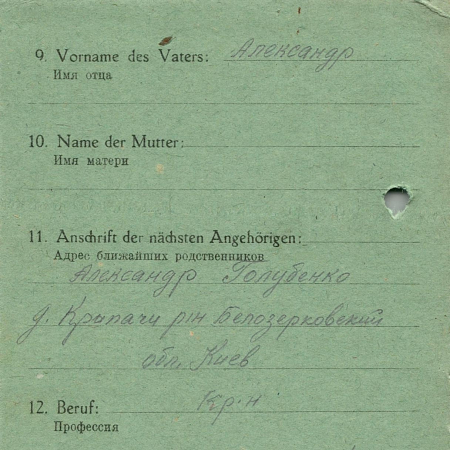 9. Vorname des Vaters: Александр
Имя отца
10. Name der Mutter:
Имя матери
11. Anschrift der nächsten Angehörigen:
Адрес ближайших родственников
Александр Голубенко
д. р-н Белозерковский
обл. Киев
12. Beruf: Кр-н
Профессия